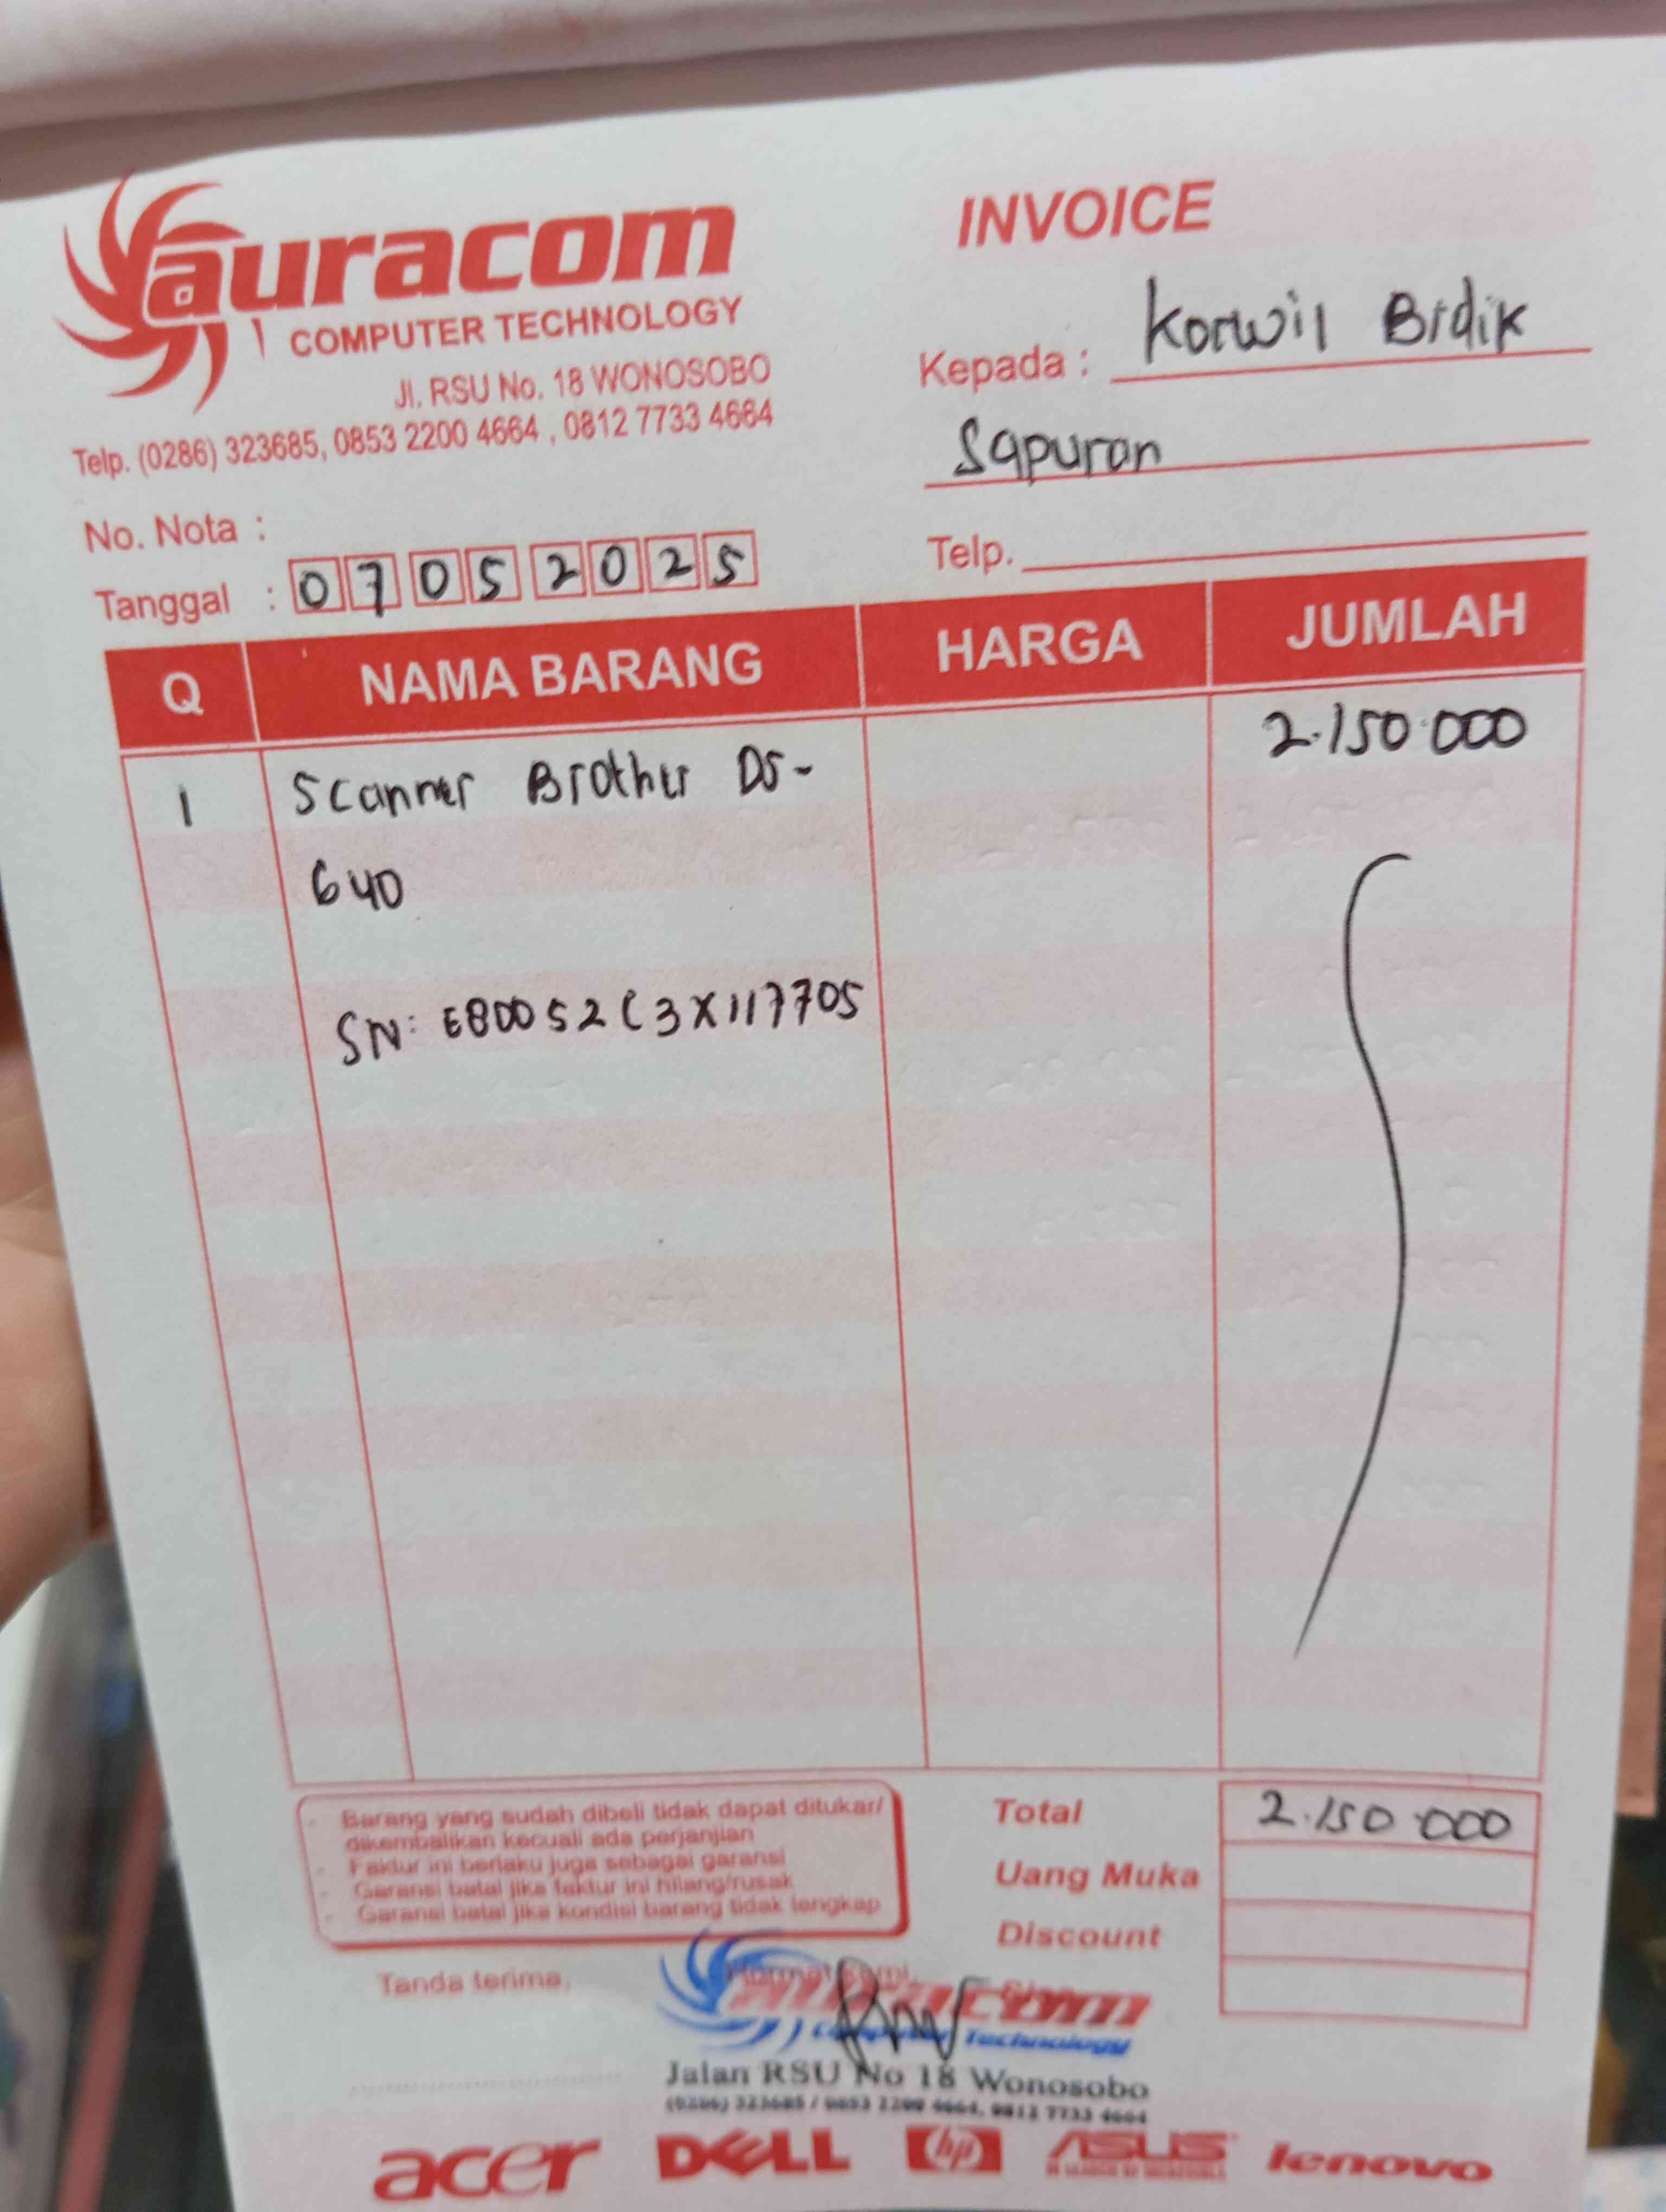 auracom
COMPUTER TECHNOLOGY
Jl. RSU No. 18 WONOSOBO
Telp. (0286) 323685, 0853 2200 4664 , 0812 7733 4664
INVOICE
Kepada : Korwil Bidik
Sapuran
Telp.
No. Nota :
Tanggal : 07052025
Q NAMA BARANG HARGA JUMLAH
1 Scanner Brother DS- 2.150.000
640
SN: E80052C3X117705
- Barang yang sudah dibeli tidak dapat ditukar/
dikembalikan kecuali ada perjanjian
- Faktur ini berlaku juga sebagai garansi
- Garansi batal jika faktur ini hilang/rusak
- Garansi batal jika kondisi barang tidak lengkap
Total 2.150.000
Uang Muka
Discount
Tanda terima, Hormat kami,
auracom
Computer Technology
Jalan RSU No 18 Wonosobo
(0286) 323685 / 0853 2200 4664, 0812 7733 4664
acer DELL hp ASUS lenovo